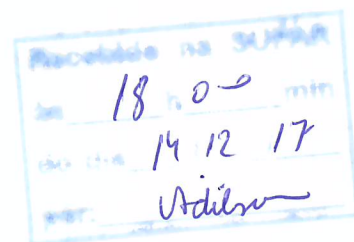 Recebido na SUPAR
às 18 h 00 min
do dia 14 12 17
Adilson